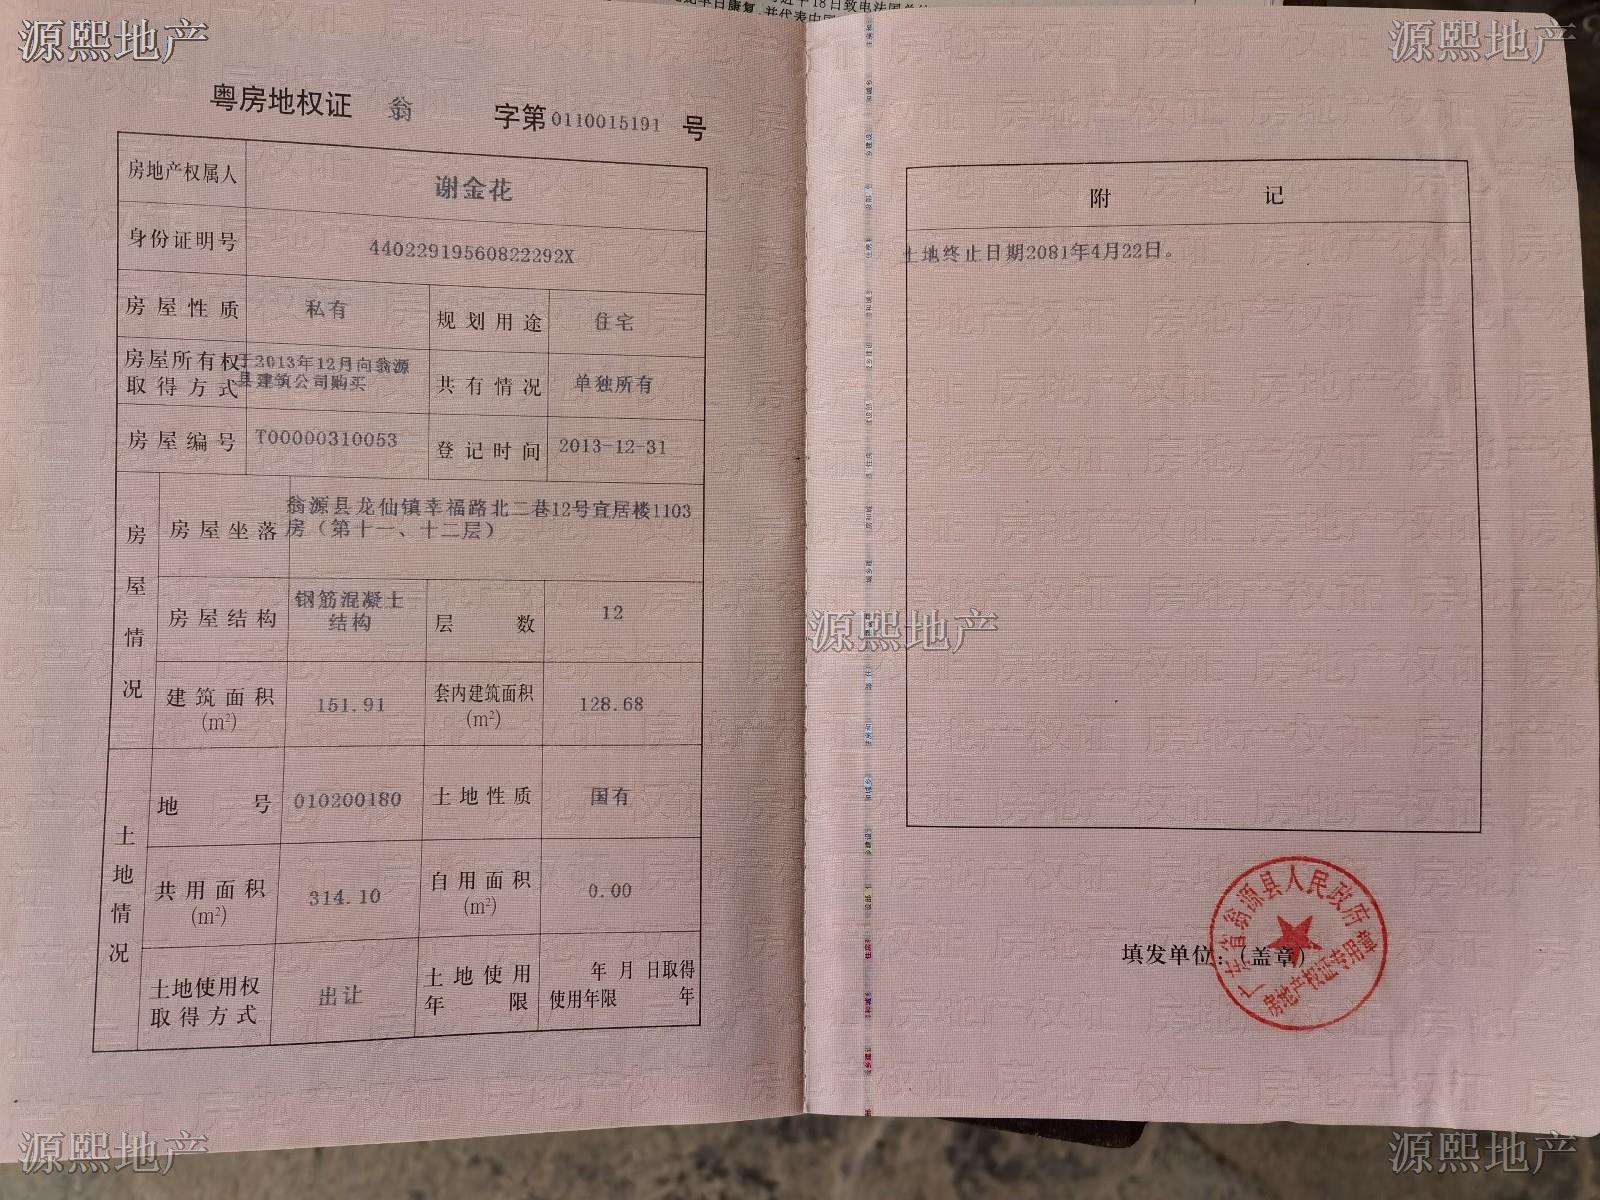 源熙地产
源熙地产
粤房地权证 翁 字第0110015191 号
房地产权属人 谢金花
身份证明号 44022919560822292X
房屋性质 私有 规划用途 住宅
房屋所有权
取得方式
于2013年12月向翁源
县建筑公司购买
共有情况 单独所有
房屋编号 T00000310053 登记时间 2013-12-31
房屋情况
房屋坐落
翁源县龙仙镇幸福路北二巷12号宜居楼1103
房（第十一、十二层）
房屋结构
钢筋混凝土
结构
层数 12
建筑面积
(m²)
151.91
套内建筑面积
(m²)
128.68
土地情况
地号 010200180 土地性质 国有
共用面积
(m²)
314.10
自用面积
(m²)
0.00
土地使用权
取得方式
出让
土地使用
年限
年 月 日取得
使用年限 年
附记
土地终止日期2081年4月22日。
源熙地产
填发单位：（盖章）
广东省翁源县人民政府
房地产权证专用章
源熙地产
源熙地产